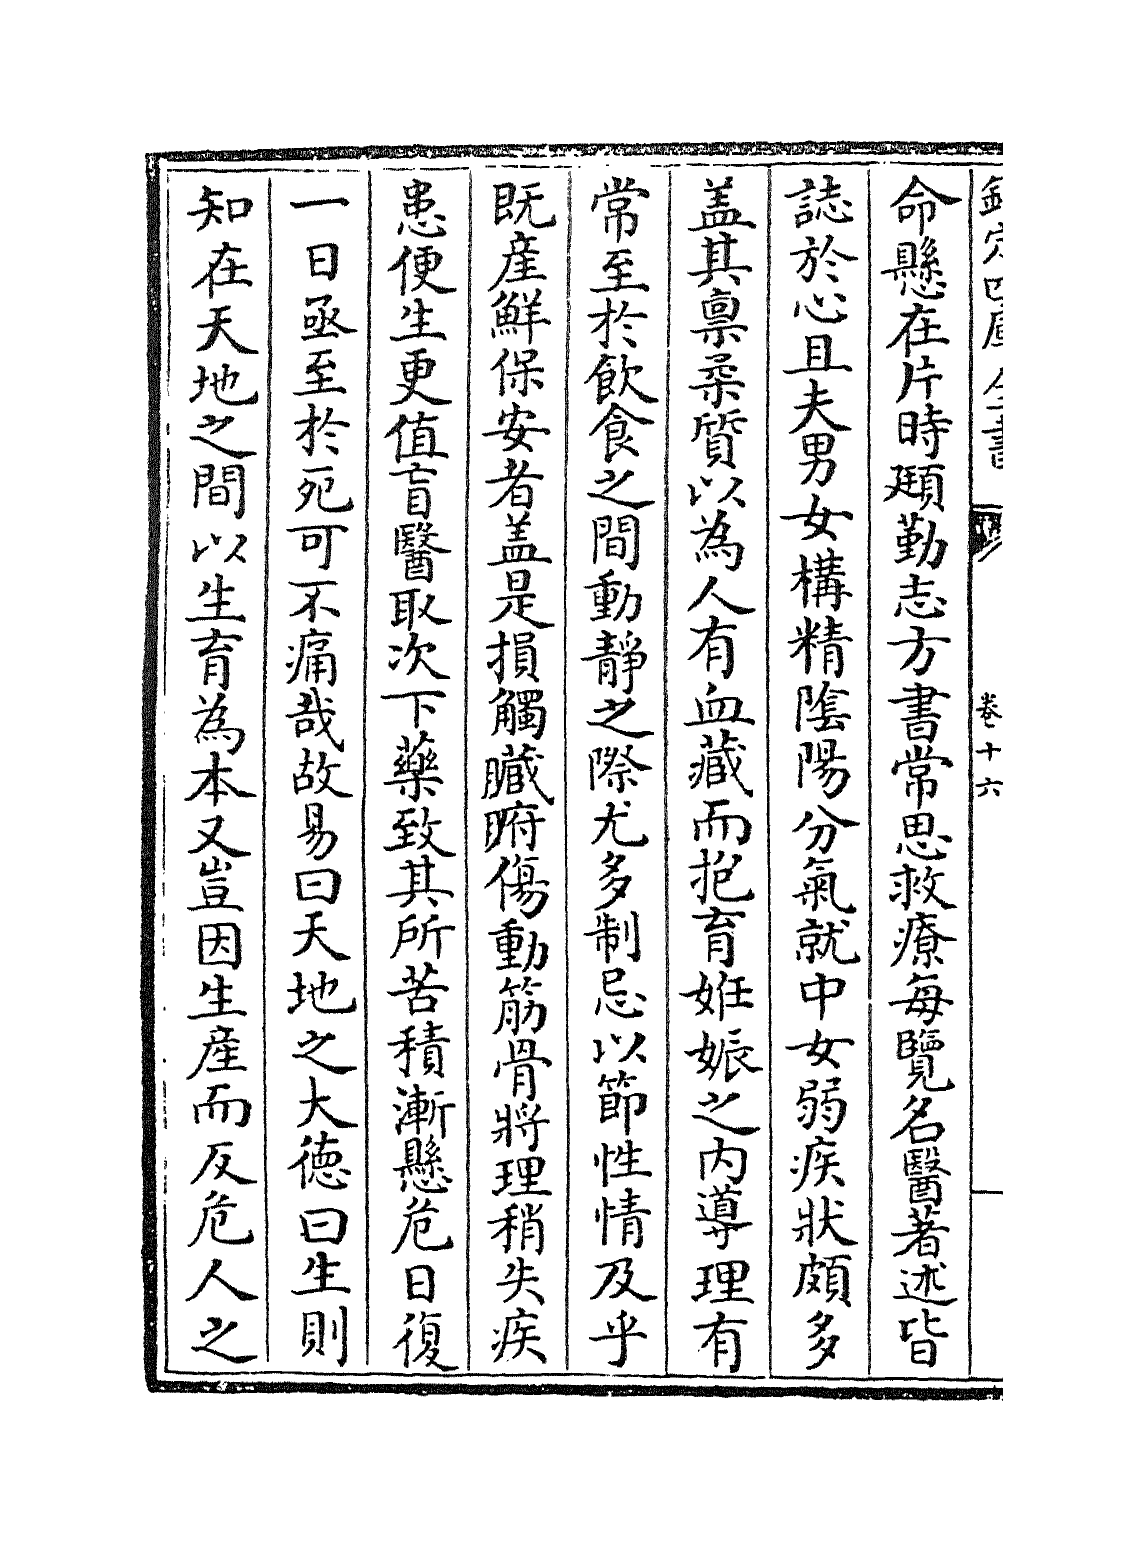 欽定四庫全書
卷十六
命懸在片時頲勤志方書常思救療每覽名醫著述皆
誌於心且夫男女構精陰陽分氣就中女弱疾狀頗多
盖其禀柔質以為人有血藏而抱育姙娠之内導理有
常至於飲食之間動靜之際尤多制忌以節性情及乎
既産鮮保安者盖是損觸臟腑傷動筋骨將理稍失疾
患便生更值盲醫取次下藥致其所苦積漸懸危日復
一日亟至於死可不痛哉故易曰天地之大徳曰生則
知在天地之間以生育為本又豈因生産而反危人之